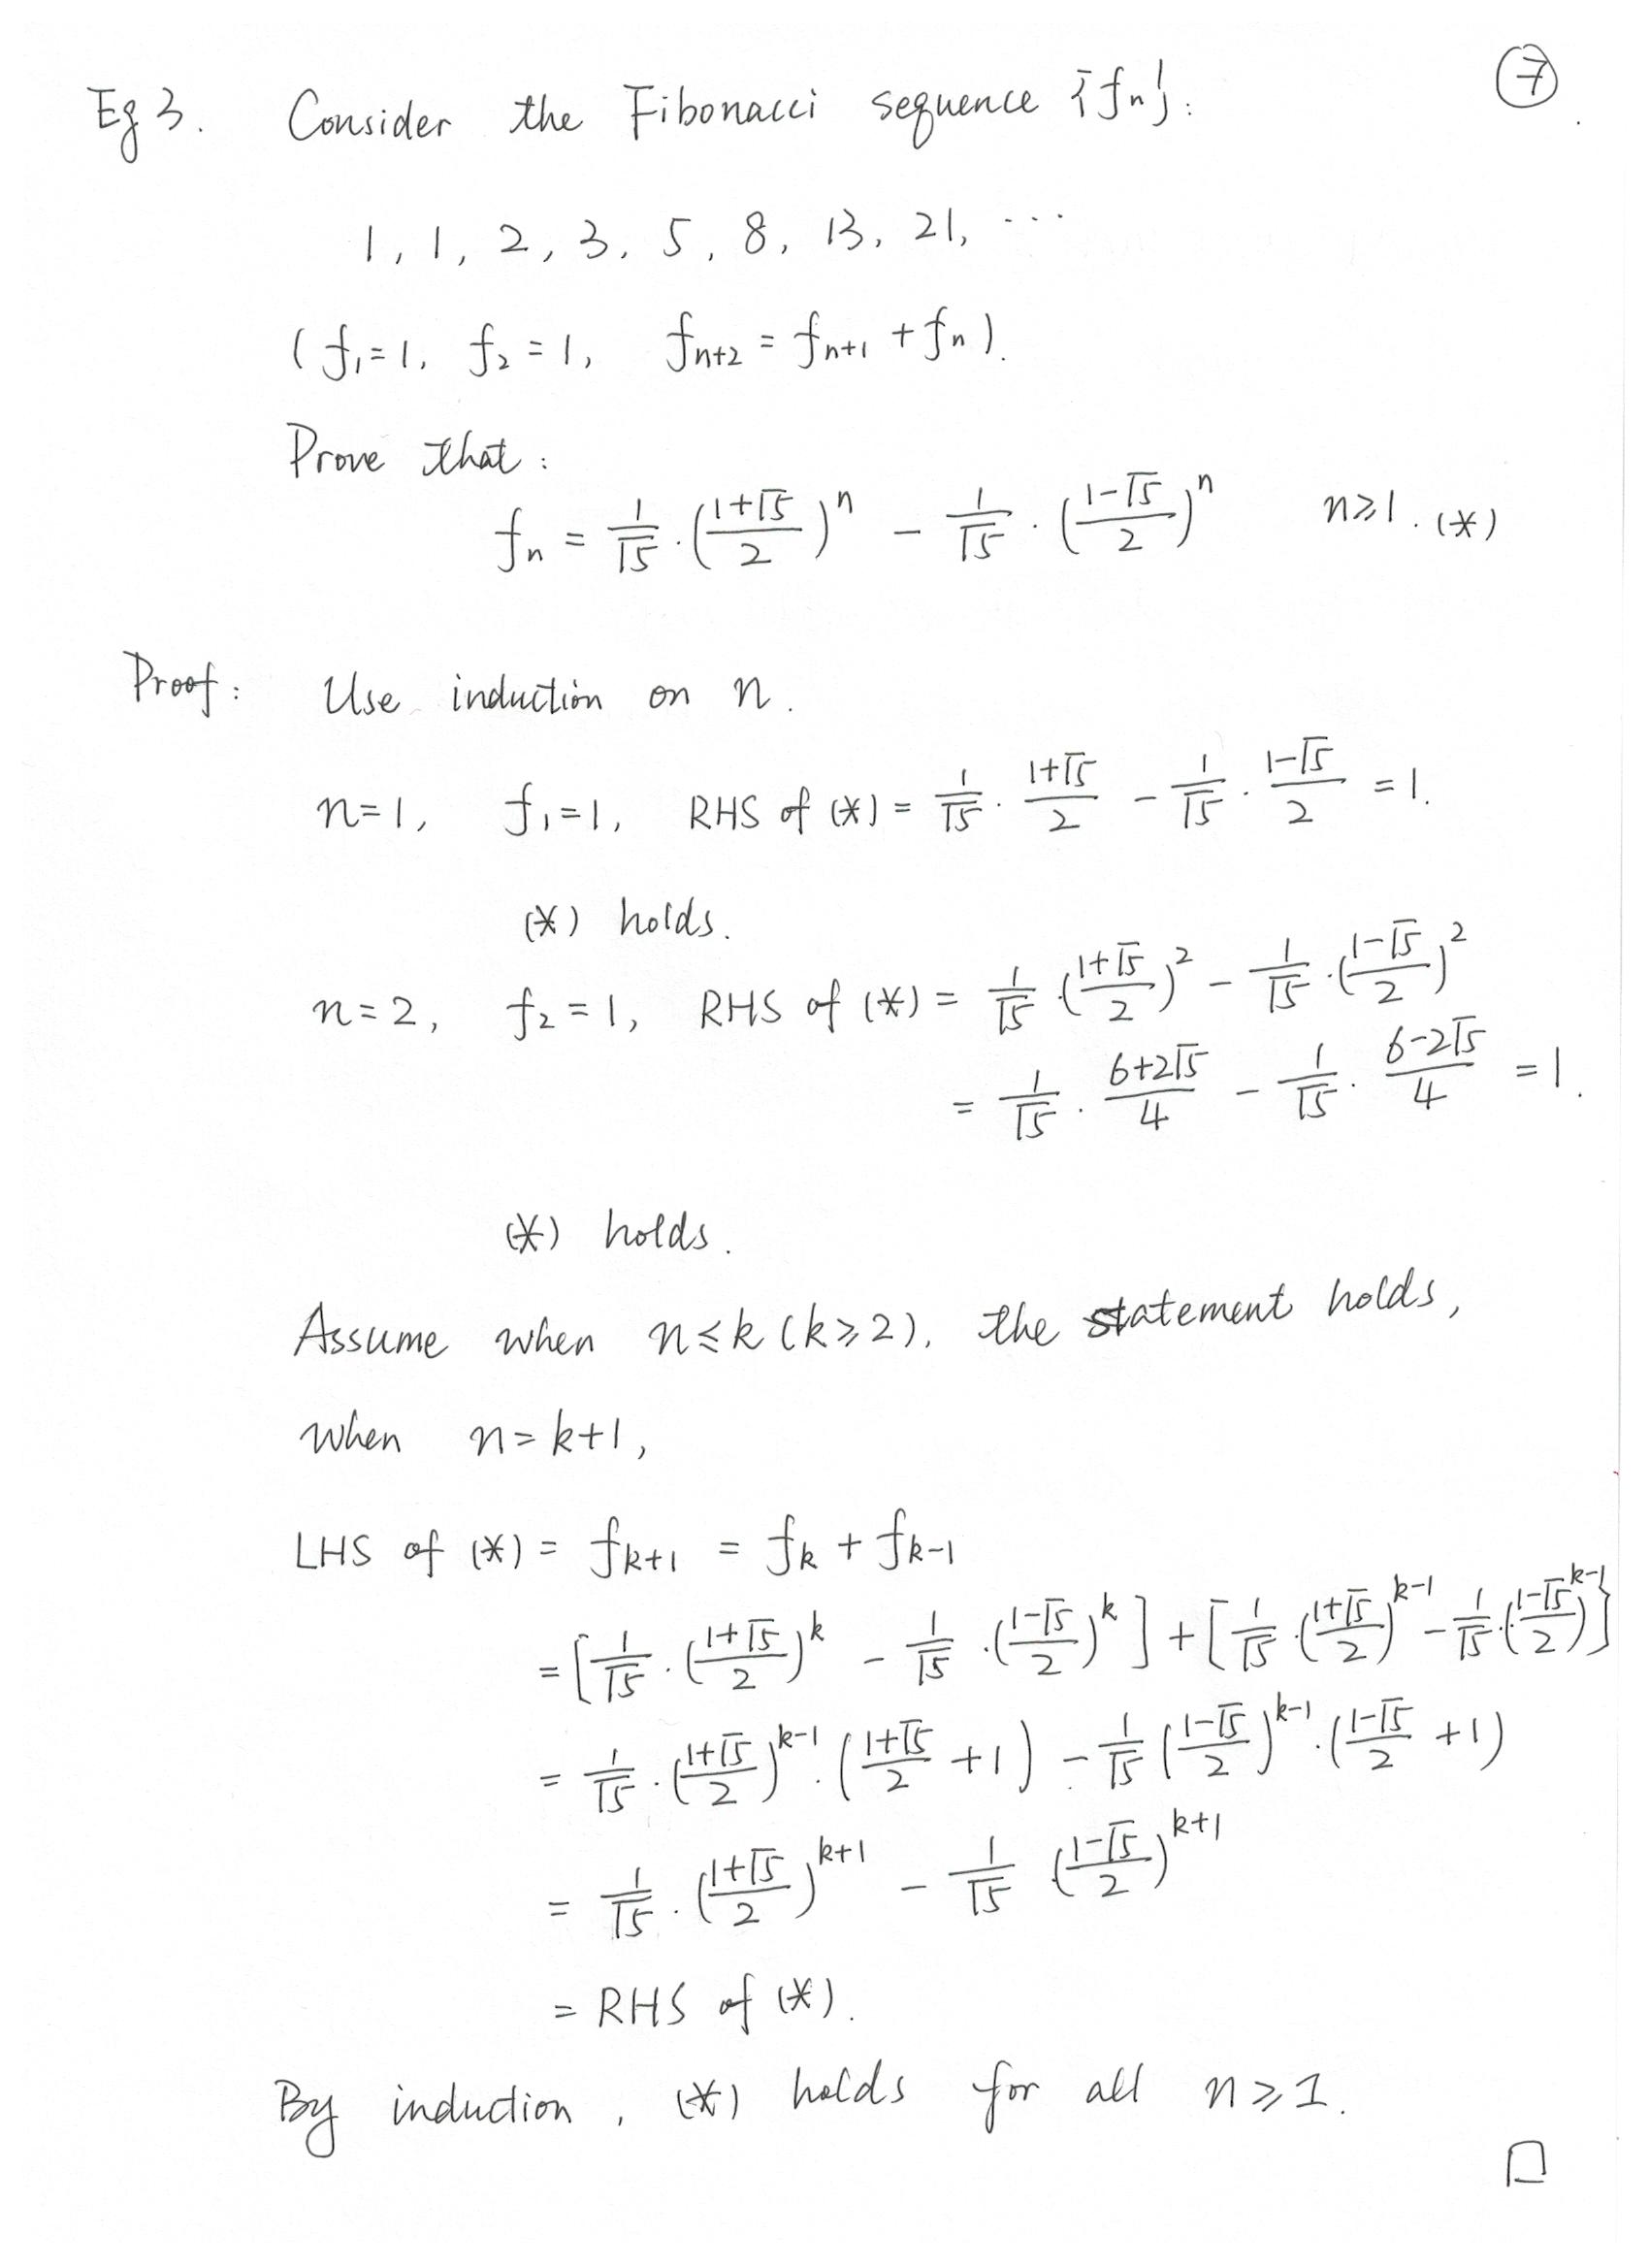 ⑦
Eg 3. Consider the Fibonacci sequence {fₙ}:
1, 1, 2, 3, 5, 8, 13, 21, ···
(f₁=1, f₂=1, fₙ₊₂ = fₙ₊₁ + fₙ).
Prove that:
fₙ = 1/√5 · ((1+√5)/2)ⁿ − 1/√5 · ((1−√5)/2)ⁿ n≥1. (*)
Proof: Use induction on n.
n=1, f₁=1, RHS of (*) = 1/√5 · (1+√5)/2 − 1/√5 · (1−√5)/2 = 1.
(*) holds.
n=2, f₂=1, RHS of (*) = 1/√5 ((1+√5)/2)² − 1/√5 · ((1−√5)/2)²
= 1/√5 · (6+2√5)/4 − 1/√5 · (6−2√5)/4 = 1.
(*) holds.
Assume when n≤k (k≥2), the statement holds,
when n=k+1,
LHS of (*) = fₖ₊₁ = fₖ + fₖ₋₁
= [1/√5 · ((1+√5)/2)ᵏ − 1/√5 · ((1−√5)/2)ᵏ] + [1/√5 · ((1+√5)/2)ᵏ⁻¹ − 1/√5 · ((1−√5)/2)ᵏ⁻¹]
= 1/√5 · ((1+√5)/2)ᵏ⁻¹ · ((1+√5)/2 + 1) − 1/√5 ((1−√5)/2)ᵏ⁻¹ · ((1−√5)/2 + 1)
= 1/√5 · ((1+√5)/2)ᵏ⁺¹ − 1/√5 ((1−√5)/2)ᵏ⁺¹
= RHS of (*).
By induction, (*) holds for all n≥1.
□